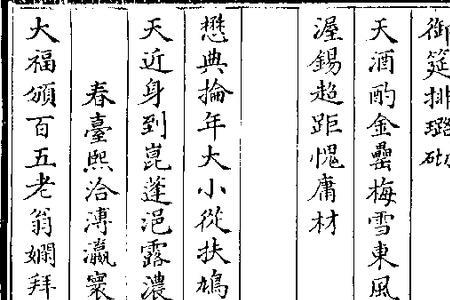 御筵排璐砌
天酒酌金罍梅雪東風
渥錫超距愧庸材
懋典掄年大小從扶鳩
天近身到崑蓬浥露濃
春臺熙洽溥瀛寰
大福頒百五老翁嫻拜